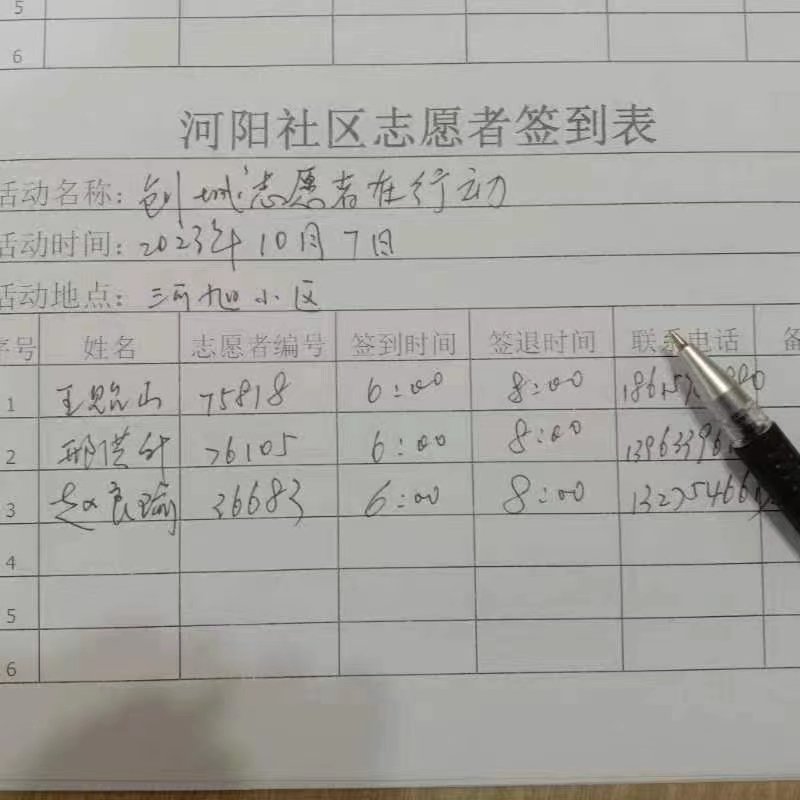 5
6
河阳社区志愿者签到表
活动名称：创城志愿者在行动
活动时间：2023年10月7日
活动地点：河旭小区
序号 姓名 志愿者编号 签到时间 签退时间 联系电话 备
1 王 山 75818 6:00 8:00
2 邢洪 76105 6:00 8:00
3 赵良 36683 6:00 8:00
4
5
6